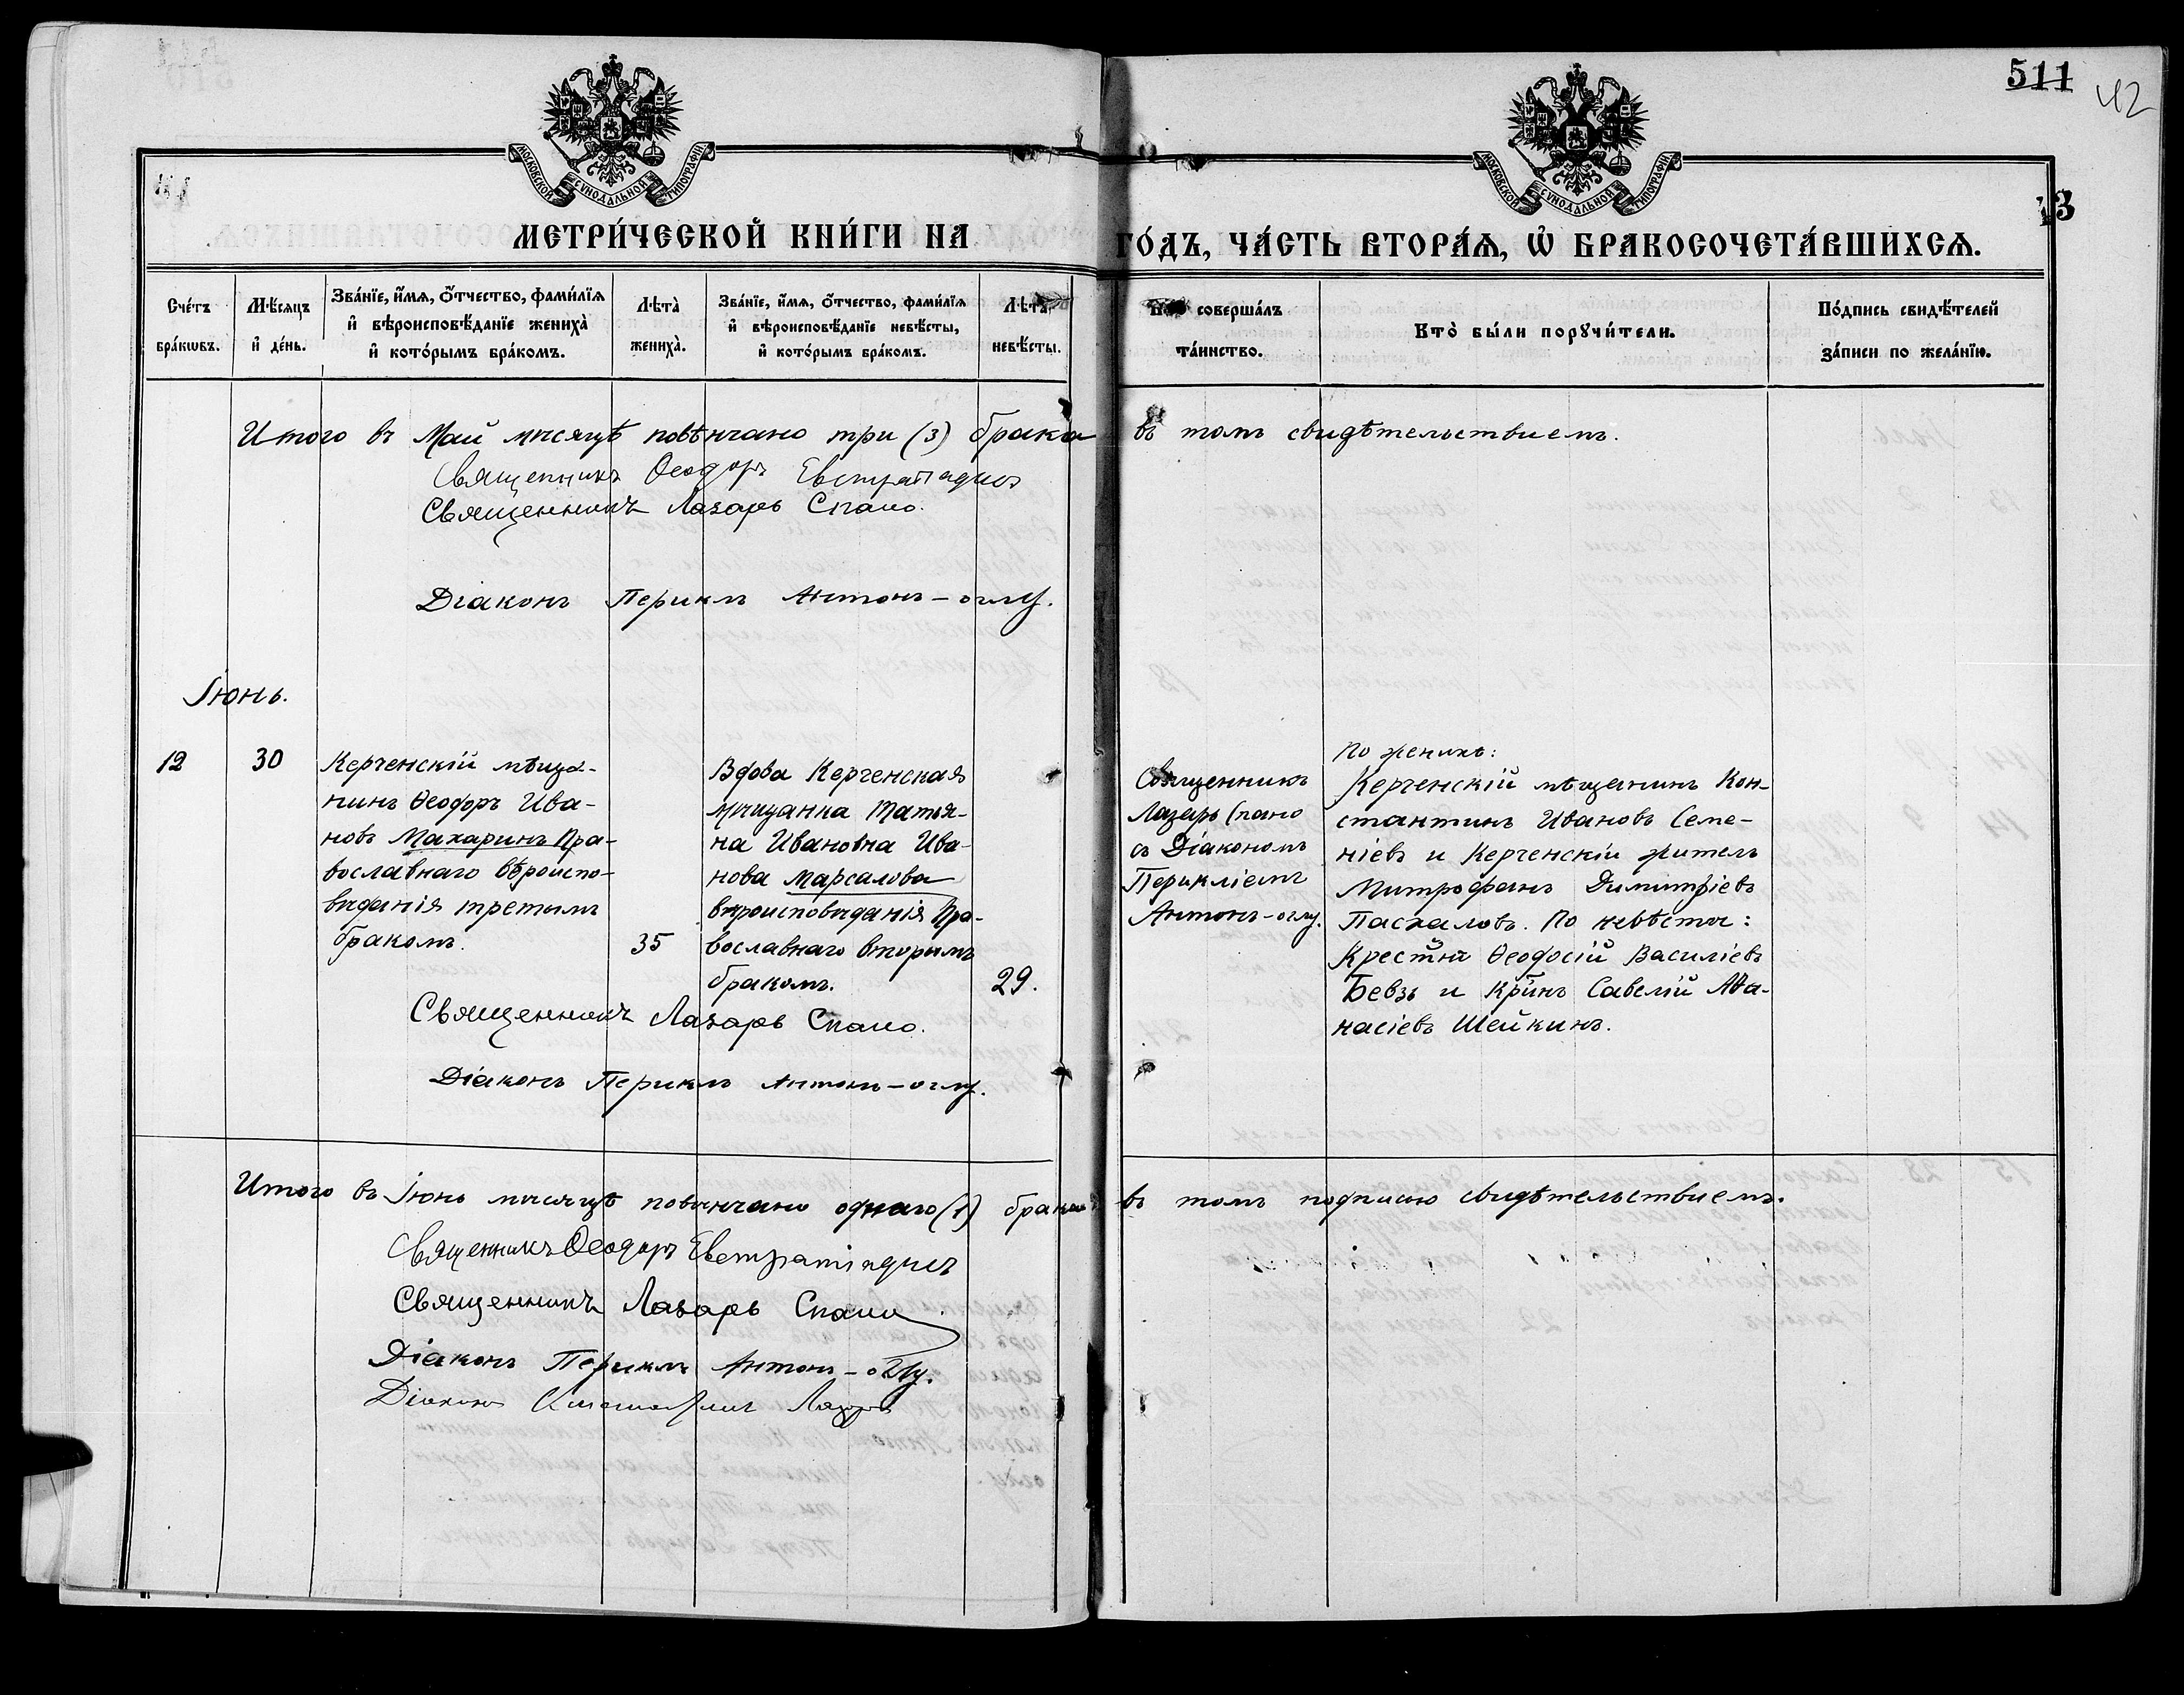 511
42
13
МОСКОВСКОЙ СУНОДАЛЬНОЙ ТИПОГРАФІИ
МОСКОВСКОЙ СУНОДАЛЬНОЙ ТИПОГРАФІИ
МЕТРИ́ЧЕСКОЙ КНИ́ГИ НА ГО́ДЪ, ЧА́СТЬ ВТОРА́Ѧ, Ѡ҆ БРАКОСОЧЕТА́ВШИХСѦ.
Сче́тъ бра́кωвъ.
Мѣ́сяцъ и҆ де́нь.
Зва́нїе, и҆́мѧ, ѻ҆́тчество, фами́лїѧ и҆ вѣроисповѣ́данїе жениха̀ и҆ кото́рымъ бра́комъ.
Лѣта̀ жениха̀.
Зва́нїе, и҆́мѧ, ѻ҆́тчество, фами́лїѧ и҆ вѣроисповѣ́данїе невѣ́сты, и҆ кото́рымъ бра́комъ.
Лѣта̀ невѣ́сты.
соверша́лъ та́инство.
Кто̀ бы́ли порꙋчи́тели.
По́дпись свидѣ́телей за́писи по жела́нїю.
Итого въ Май мѣсяцѣ повѣнчано три (3) брака въ томъ свидѣтельствуемъ.
Священникъ Ѳеодоръ Евстратіадисъ
Священникъ Лазарь Спано.
Діаконъ Периклъ Антонъ-оглу.
Іюнь.
12
30
Керченскій мѣща-
нинъ Ѳеодоръ Ива-
новъ Махаринъ Пра-
вославнаго вѣроиспо-
вѣданія третьимъ
бракомъ.
35
Вдова Керченская
мѣщанка Татья-
на Ивановна Ива-
нова Марсалова
вѣроисповѣданія Пра-
вославнаго вторымъ
бракомъ.
29.
Священникъ
Лазарь Спано
съ Діакономъ
Перикліемъ
Антонъ-оглу.
По женихѣ:
Керченскій мѣщанинъ Кон-
стантинъ Ивановъ Семе-
ніевъ и Керченскій житель
Митрофанъ Димитріевъ
Пасхаловъ. По невѣстѣ:
Крестнй Ѳеодосій Василіевъ
Бевзъ и Кр̃инъ Савелій Аѳа-
насіевъ Шейкинъ.
Священникъ Лазарь Спано.
Діаконъ Периклъ Антонъ-оглу.
Итого въ Іюнь мѣсяцѣ повѣнчано однаго (1) брака въ томъ подписью свидѣтельствуемъ.
Священникъ Ѳеодоръ Евстратіадисъ
Священникъ Лазарь Спано
Діаконъ Периклъ Антонъ-оглу.
Діаконъ